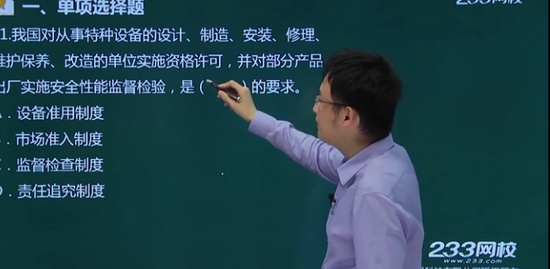 一、单项选择题
233网校
1.我国对从事特种设备的设计、制造、安装、修理、
维护保养、改造的单位实施资格许可，并对部分产品
出厂实施安全性能监督检验，是（ ）的要求。
A．设备准用制度
B．市场准入制度
C．监督检查制度
D．责任追究制度
233网校
www.233.com